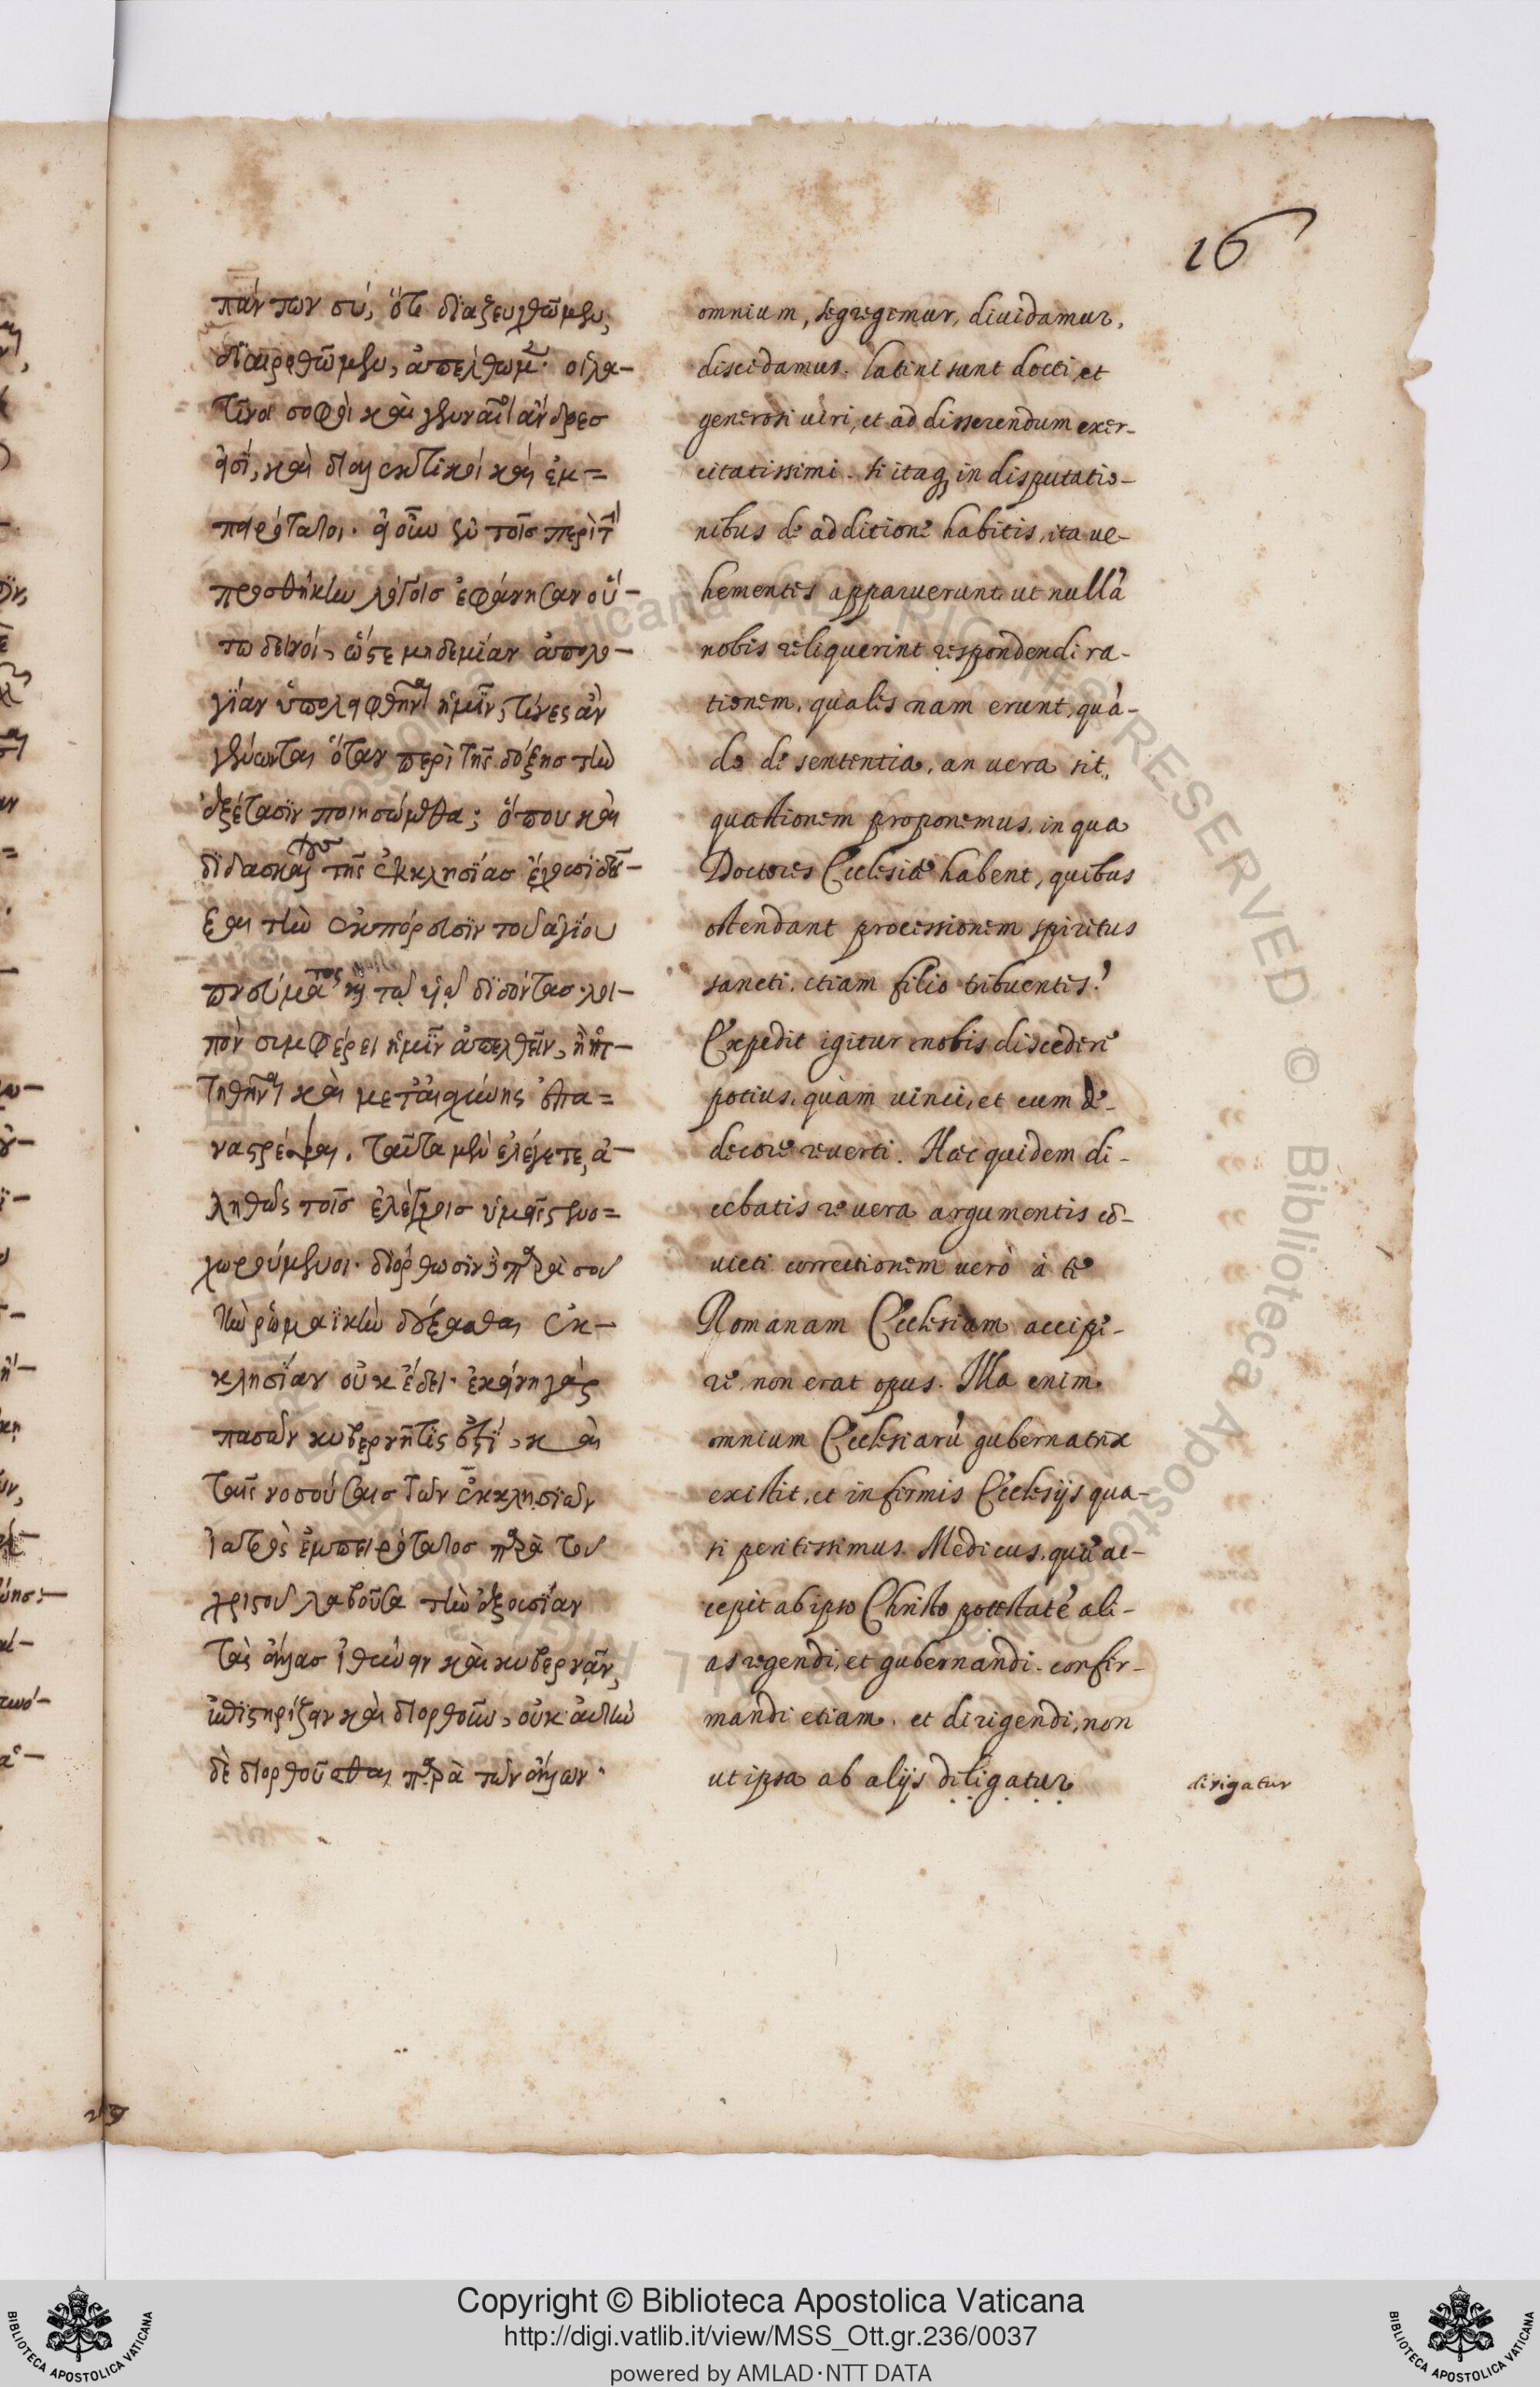 16
πάντων σύ, ὅτε διαζευχθῶμεν,
διαιρεθῶμεν, ἀπέλθωμεν· οἱ λα-
τῖνοι σοφοὶ καὶ γενναῖοι ἄνδρες
εἰσί, καὶ διαλεκτικοὶ καὶ ἐμ=
πειρότατοι· εἰ οὖν ἐν τοῖς περὶ τ
προσθήκην λόγοις ἐφάνησαν οὕ-
τω δεινοί, ὥστε μηδεμίαν ἀπολο-
γίαν ὑπολειφθῆναι ἡμῖν, τίνες ἂν
γένωνται ὅταν περὶ τῆς δόξης τὴν
ἐξέτασιν ποιησώμεθα; ὅπου καὶ
διδασκάλους τῆς ἐκκλησίας ἔχουσι δεῖ-
ξαι τὴν ἐκπόρευσιν τοῦ ἁγίου
πνεύματος καὶ τῷ υἱῷ διδόντας· λοι-
πὸν συμφέρει ἡμῖν ἀπελθεῖν, ἢ ἡτ-
τηθῆναι καὶ μετ' αἰσχύνης ἐπα=
ναστρέψαι. ταῦτα μὲν ἐλέγετε, ἀ-
ληθῶς τοῖς ἐλέγχοις ὑμεῖς
διόρθωσιν δὲ παρὰ σοῦ
τὴν ῥωμαϊκὴν δέξασθαι ἐκ-
κλησίαν οὐκ ἔδει· ἐκείνη γὰρ
πασῶν κυβερνῆτις ἐστί, καὶ
ταῖς νοσούσαις τῶν ἐκκλησιῶν
ἰατρὸς ἐμπειρότατος παρὰ τοῦ
χριστοῦ λαβοῦσα τὴν ἐξουσίαν
τὰς ἄλλας ἰθύνειν καὶ κυβερνᾶν,
ἐπιστηρίζειν καὶ διορθοῦν, οὐκ αὐτὴν
δὲ διορθοῦσθαι παρὰ τῶν ἄλλων·
omnium, segregemur, diuidamur,
discedamus. Latini sunt docti et
generosi uiri, et ad disserendum exer-
citatissimi. si itaq, in disputatio-
nibus de additione habitis, ita ue-
hementes apparuerunt ut nullā
nobis reliquerint respondendi ra-
tionem, qualis nam erunt, quā-
do de sententia, an uera sit,
quæstionem proponemus. in qua
Doctores Ecclesiæ habent, quibus
ostendant processionem spiritus
sancti. etiam filio tribuentes?
Expedit igitur nobis discedere
potius, quàm uinci, et cum de-
decore reuerti. Hæc quidem di-
cebatis reuera argumentis cō-
uicti. correctionem uerò à te
Romanam Ecclesiam accipe-
re non erat opus. Illa enim
omnium Ecclesiarū gubernatrix
existit, et infirmis Ecclesijs qua-
si peritissimus Medicus, quæ ac-
cepit ab ipso Christo potestatē ali-
as regendi, et gubernandi. confir-
mandi etiam. et dirigendi, non
ut ipsa ab alijs diligatur
dirigatur
Copyright © Biblioteca Apostolica Vaticana
http://digi.vatlib.it/view/MSS_Ott.gr.236/0037
powered by AMLAD·NTT DATA
BIBLIOTECA APOSTOLICA VATICANA
BIBLIOTECA APOSTOLICA VATICANA